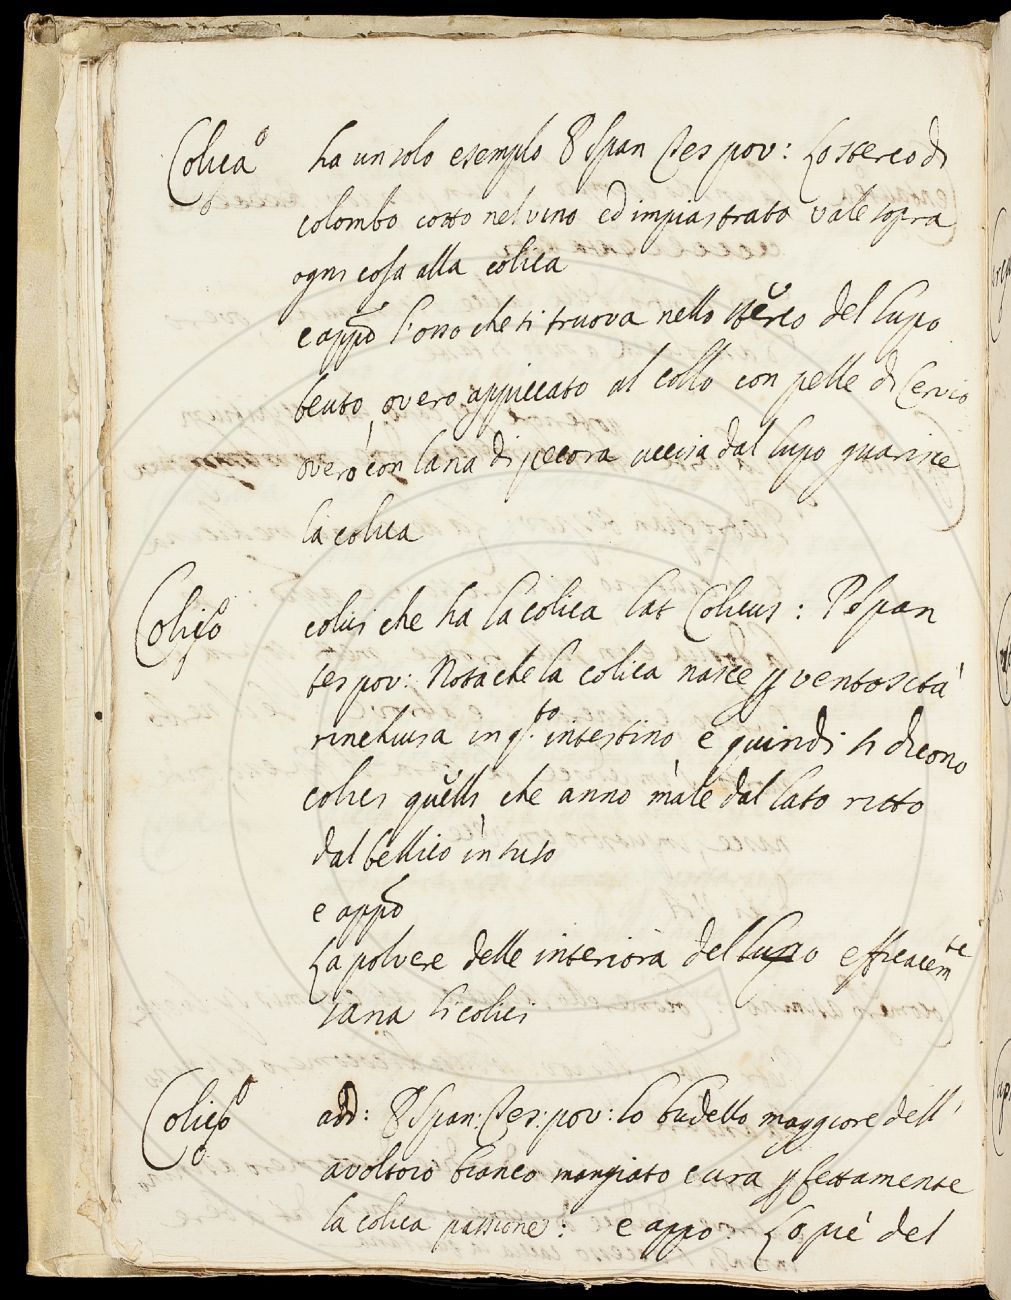 Colica ha un solo esempio P Span Tes pov: Lo sterco di
colombo cotto nel vino ed impiastrato vale sopra
ogni cosa alla colica
e appo l'osso che si truova nello sterco del lupo
beuto, overo appiccato al collo con pelle di Cervio
overo con lana di pecora uccisa dal lupo guarisce
la colica
Colico colui che ha la colica lat Colicus: P Span
tes pov: Nota che la colica nasce p ventosità
rinchiusa in q.to intestino e quindi si dicono
colici quelli che anno male dal lato ritto
dal bellico in suso
e appo
La polvere delle interiora del lupo efficacem.te
sana li colici
Colico add: P Span: Tes: pov: lo budello maggiore dell'
avoltoio bianco mangiato cura pfettamente
la colica passione: e appo Lo piè del